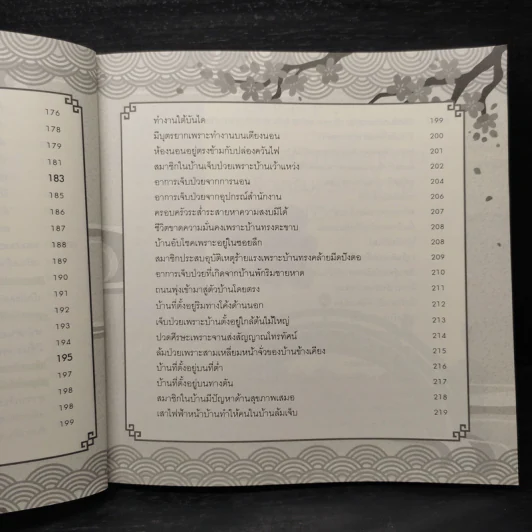 176
178
179
181
183
185
186
187
188
189
190
191
192
193
194
195
197
198
198
199
ทำงานใต้บันได 199
มีบุตรยากเพราะทำงานบนเตียงนอน 200
ห้องนอนอยู่ตรงข้ามกับปล่องควันไฟ 201
สมาชิกในบ้านเจ็บป่วยเพราะบ้านเว้าแหว่ง 202
อาการเจ็บป่วยจากการนอน 204
อาการเจ็บป่วยจากอุปกรณ์สำนักงาน 206
ครอบครัวระส่ำระสายหาความสงบมิได้ 207
ชีวิตขาดความมั่นคงเพราะบ้านทรงตะขาบ 208
บ้านอับโชคเพราะอยู่ในซอยลึก 208
สมาชิกประสบอุบัติเหตุร้ายแรงเพราะบ้านทรงคล้ายมีดปังตอ 209
อาการเจ็บป่วยที่เกิดจากบ้านพักริมชายหาด 210
ถนนพุ่งเข้ามาสู่ตัวบ้านโดยตรง 211
บ้านที่ตั้งอยู่ริมทางโค้งด้านนอก 212
เจ็บป่วยเพราะบ้านตั้งอยู่ใกล้ต้นไม้ใหญ่ 213
ปวดศีรษะเพราะจานส่งสัญญาณโทรทัศน์ 214
ล้มป่วยเพราะสามเหลี่ยมหน้าจั่วของบ้านข้างเคียง 215
บ้านที่ตั้งอยู่บนที่ต่ำ 216
บ้านที่ตั้งอยู่บนทางตัน 217
สมาชิกในบ้านมีปัญหาด้านสุขภาพเสมอ 218
เสาไฟฟ้าหน้าบ้านทำให้คนในบ้านล้มเจ็บ 219